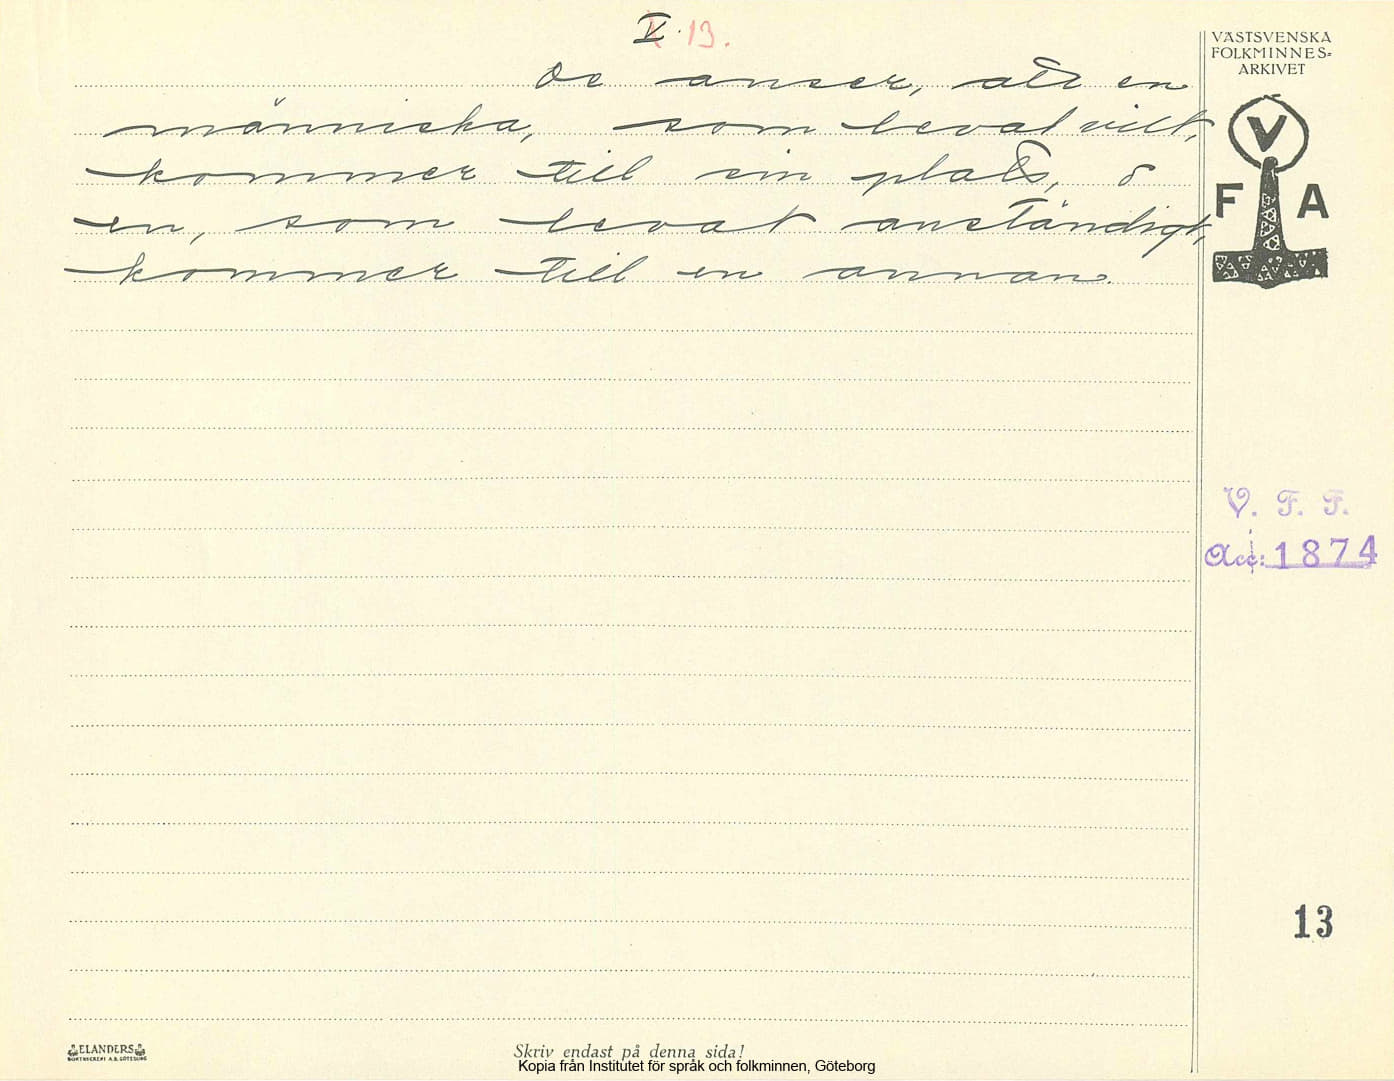 V. 13.
De anser, att en
människa, som levat vilt,
kommer till sin plats, o
en, som levat anständigt,
kommer till en annan.
VÄSTSVENSKA
FOLKMINNES=
ARKIVET
V
F A
V. F. F.
Acc: 1874
13
ELANDERS
BOKTRYCKERI A.B. GÖTEBORG
Skriv endast på denna sida!
Kopia från Institutet för språk och folkminnen, Göteborg